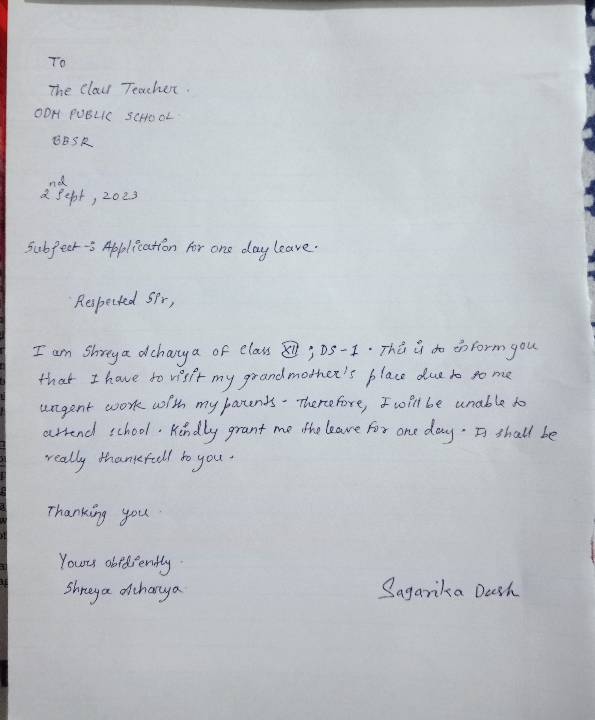 To
The Class Teacher.
ODM PUBLIC SCHOOL.
BBSR
2nd Sept, 2023
Subject -: Application for one day leave.
Respected Sir,
I am Shreya Acharya of Class XII ; DS-1. This is to inform you
that I have to visit my grandmother's place due to some
urgent work with my parents. Therefore, I will be unable to
attend school. Kindly grant me the leave for one day. I shall be
really thankfull to you.
Thanking you.
Yours obidiently.
Shreya Acharya
Sagarika Dash